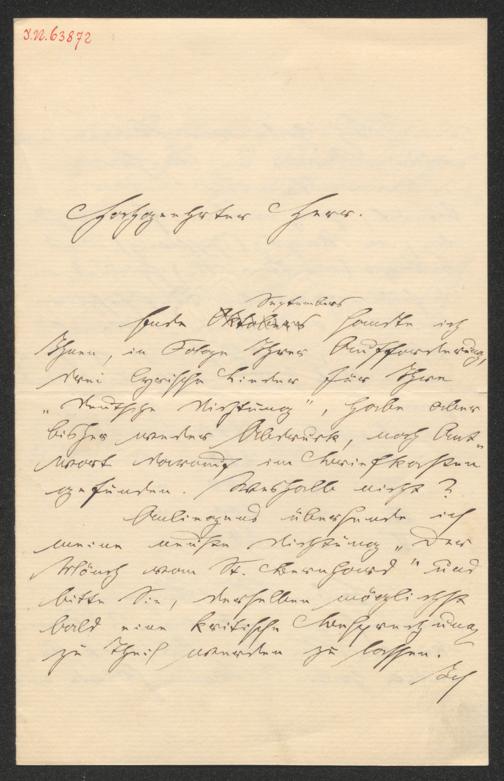 I.N. 63872
Hochgeehrter Herr.
Septembers
Ende Oktobers sandte ich
Ihnen, in Folge Ihrer Aufforderung,
drei lyrische Lieder für Ihre
„Deutsche Dichtung", habe aber
bisher weder Abdruck, noch Ant-
wort darauf im Briefkasten
gefunden. Weshalb nicht?
Anliegend übersende ich
meine neuste Dichtung „Der
Mönch vom St. Bernhard" und
bitte Sie, derselben möglichst
bald eine kritische Besprechung
zu Theil werden zu lassen.
Ich